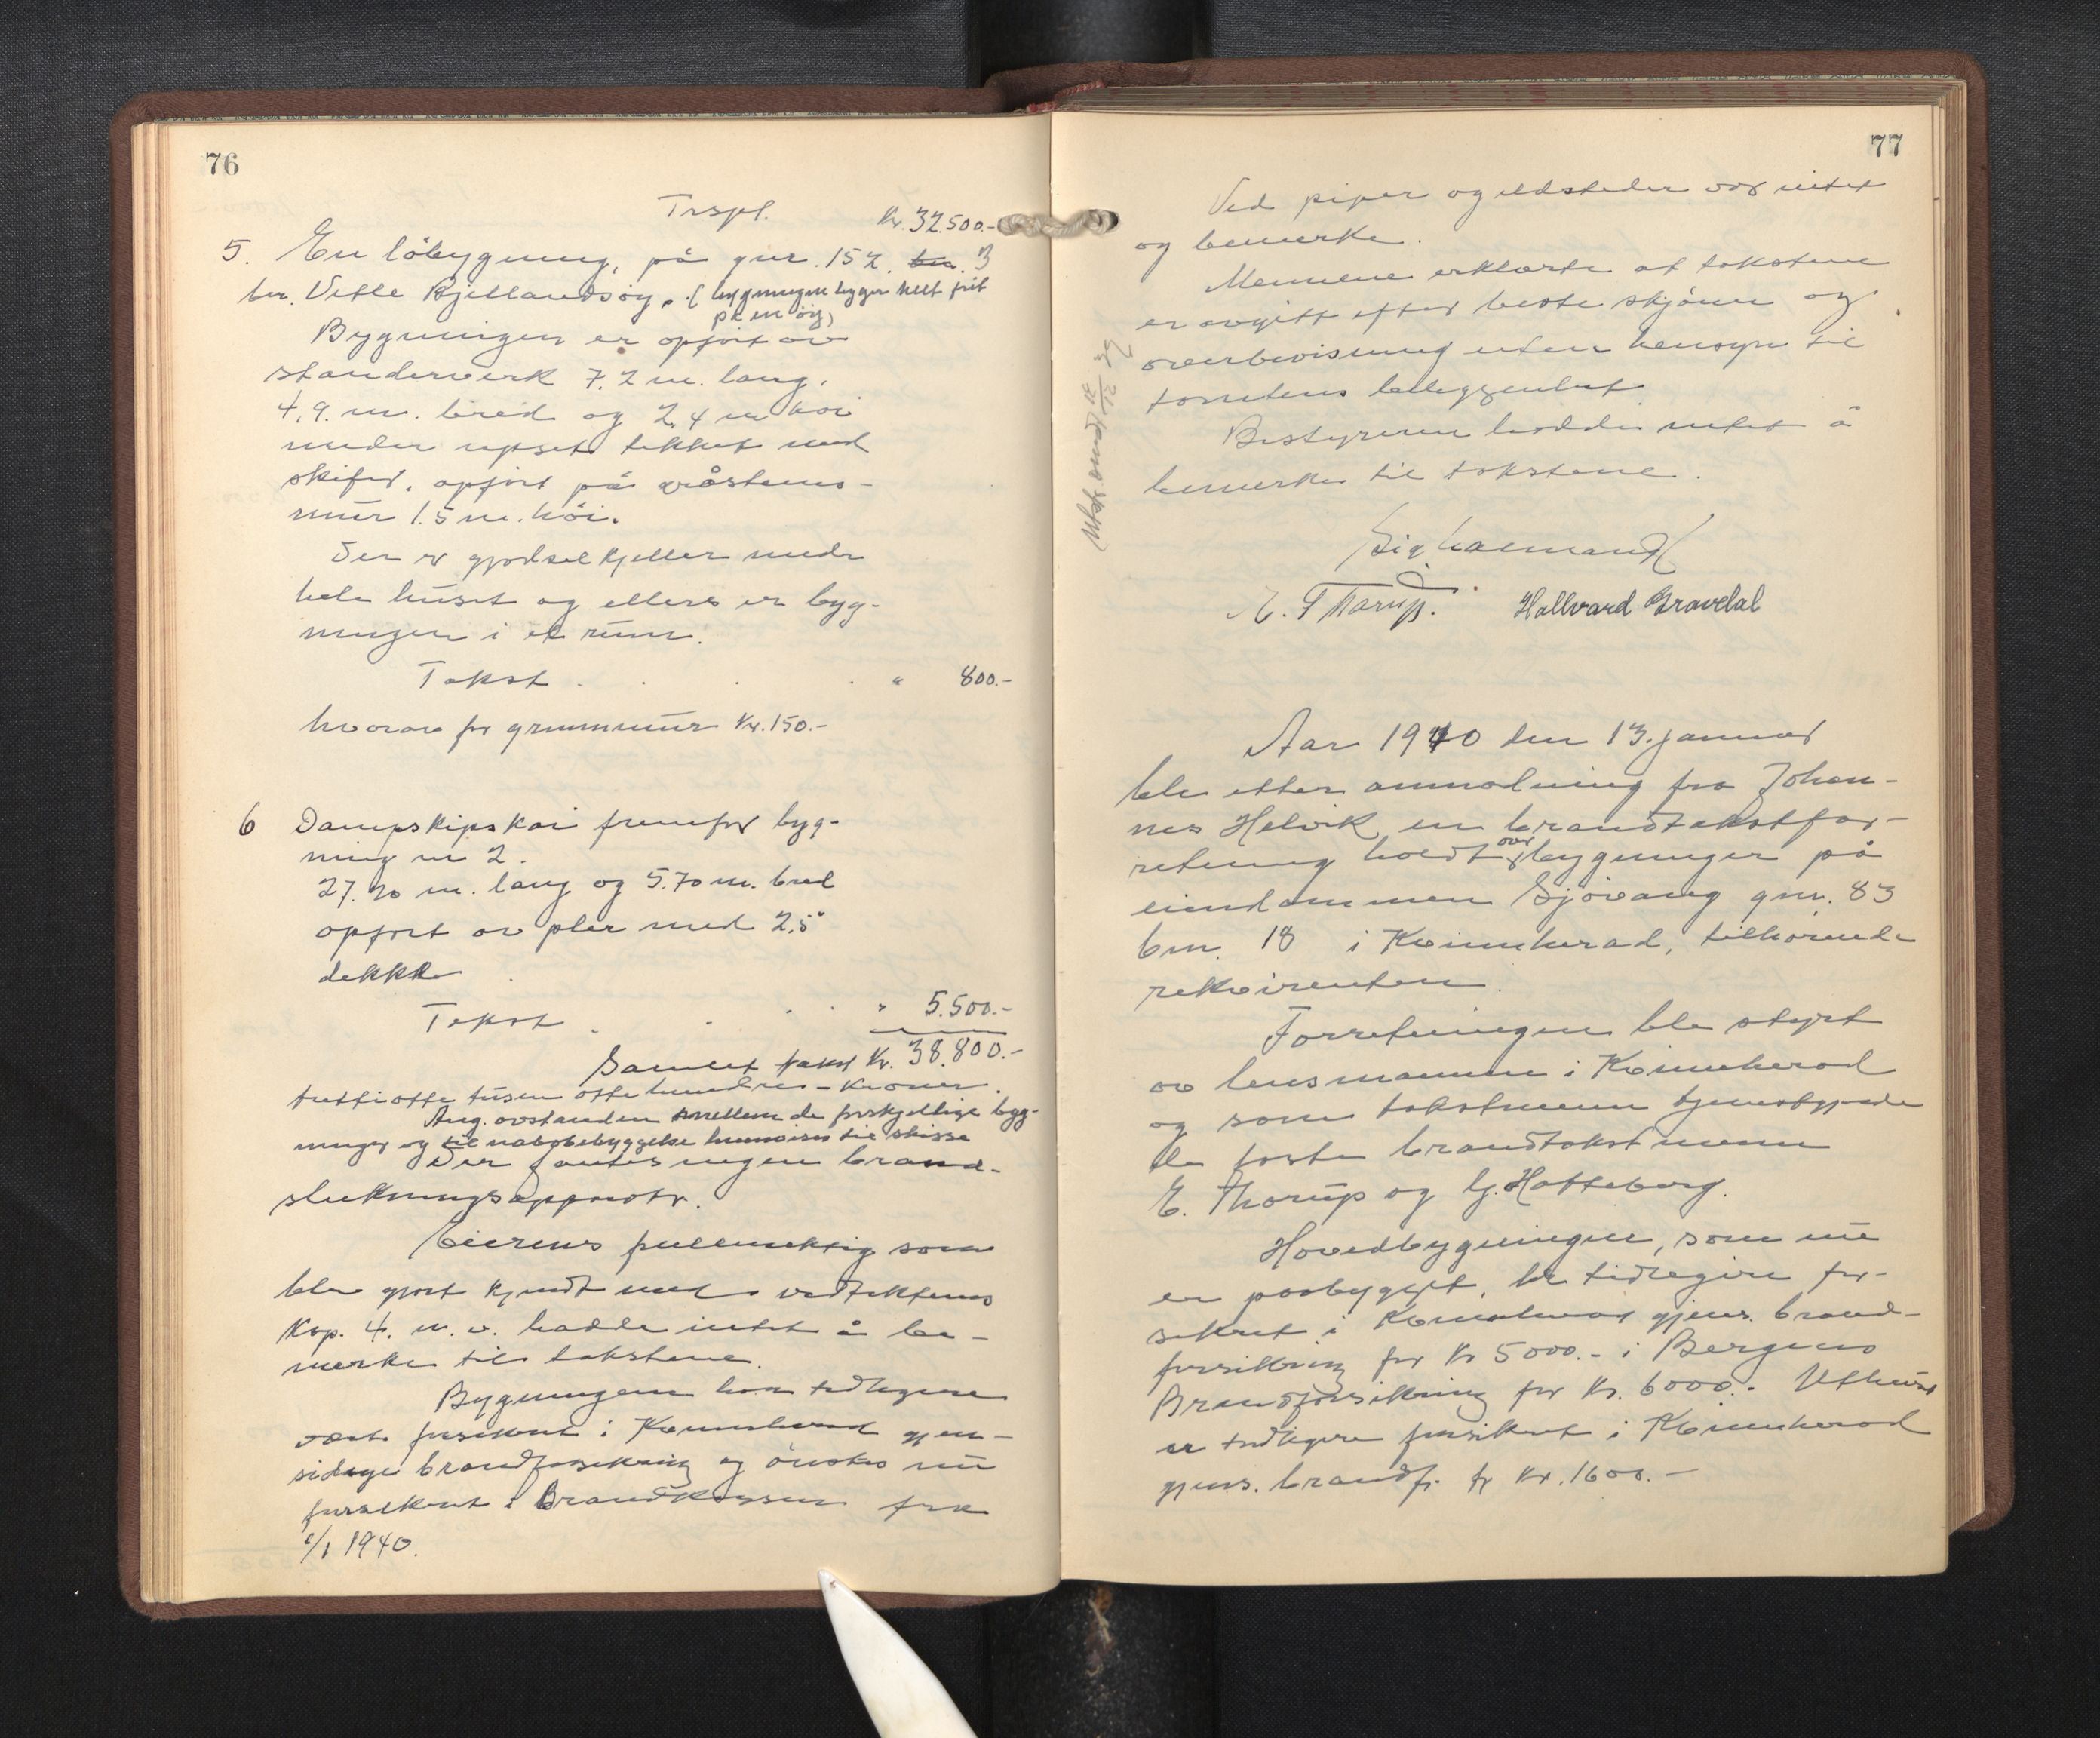 76
Trspl. Kr. 32.500.-
5. En löbygning, på gnr. 152. bnr. 3
ber. Vetle Kjellandsöy. (bygningen ligger helt frit
på en öy)
Bygningen er opfört av
standerverk 7.2 m. lang.
4.9. m. bred og 2,4 m höi
under upset. tekket med
skifer, opfört på gråstens-
mur 1.5 m. höi.
Der er gjödselkjeller under
hele huset og ellers er byg-
ningen i et rum.
Takst . . . . " 800.-
hvorav for grunnmur Kr. 150.-
6 Dampskipskai fremfor byg-
ning nr 2.
27.20 m. lang og 5.70 m. bred
opfört av peler med 2,5"
dekke
Takst . . . . " 5.500.-
Samlet takst Kr. 38.800.-
trettiotte tusen otte hundre - Kroner.
Ang. avstanden mellem de forskjellige byg-
ninger og til nabobebyggelse henvises til skisse
Der fantes ingen brand-
slukningsapparater.
Eierens fullmektig som
ble gjort kjendt med vedtektenes
Kap. 4. m. v. hadde intet å be-
merke til takstene.
Bygningene har tidligere
vært forsikret i Kvinnherad gjen-
sidige brandforsikring og önskes nu
forsikret i Brandkassen fra
1/1 1940.
77
Ved piper og ildsteder var intet
og bemerke.
Mennene erklærte at takstene
er avgitt efter beste skjönn og
overbevisning uten hensyn til
tomtens beliggenhet.
Bestyreren hadde intet å
bemerke til takstene.
Utskr. sendt 12/12 39
E. Thorup. Hallvard Gravdal
Aar 1940 den 13. januar
ble etter anmodning fra Johan-
nes Helvik en brandtakstfor-
retning holdt over bygninger på
eiendommen Sjövang gnr. 83
bnr. 18 i Kvinnherad, tilhörende
rekvirenten.
Forretningen ble styrt
av lensmannen i Kvinnherad
og som takstmenn tjenestgjorde
de faste brandtakstmenn
E. Thorup og G. Hatteberg.
Hovedbygningen, som nu
er påbygget, er tidligere for-
sikret i Kvinnherad gjens. brand-
forsikring for Kr 5000.- i Bergens
Brandforsikring for Kr. 6000.- Uthuset
er tidligere forsikret i Kvinnherad
gjens. brandf. for Kr. 1600.-